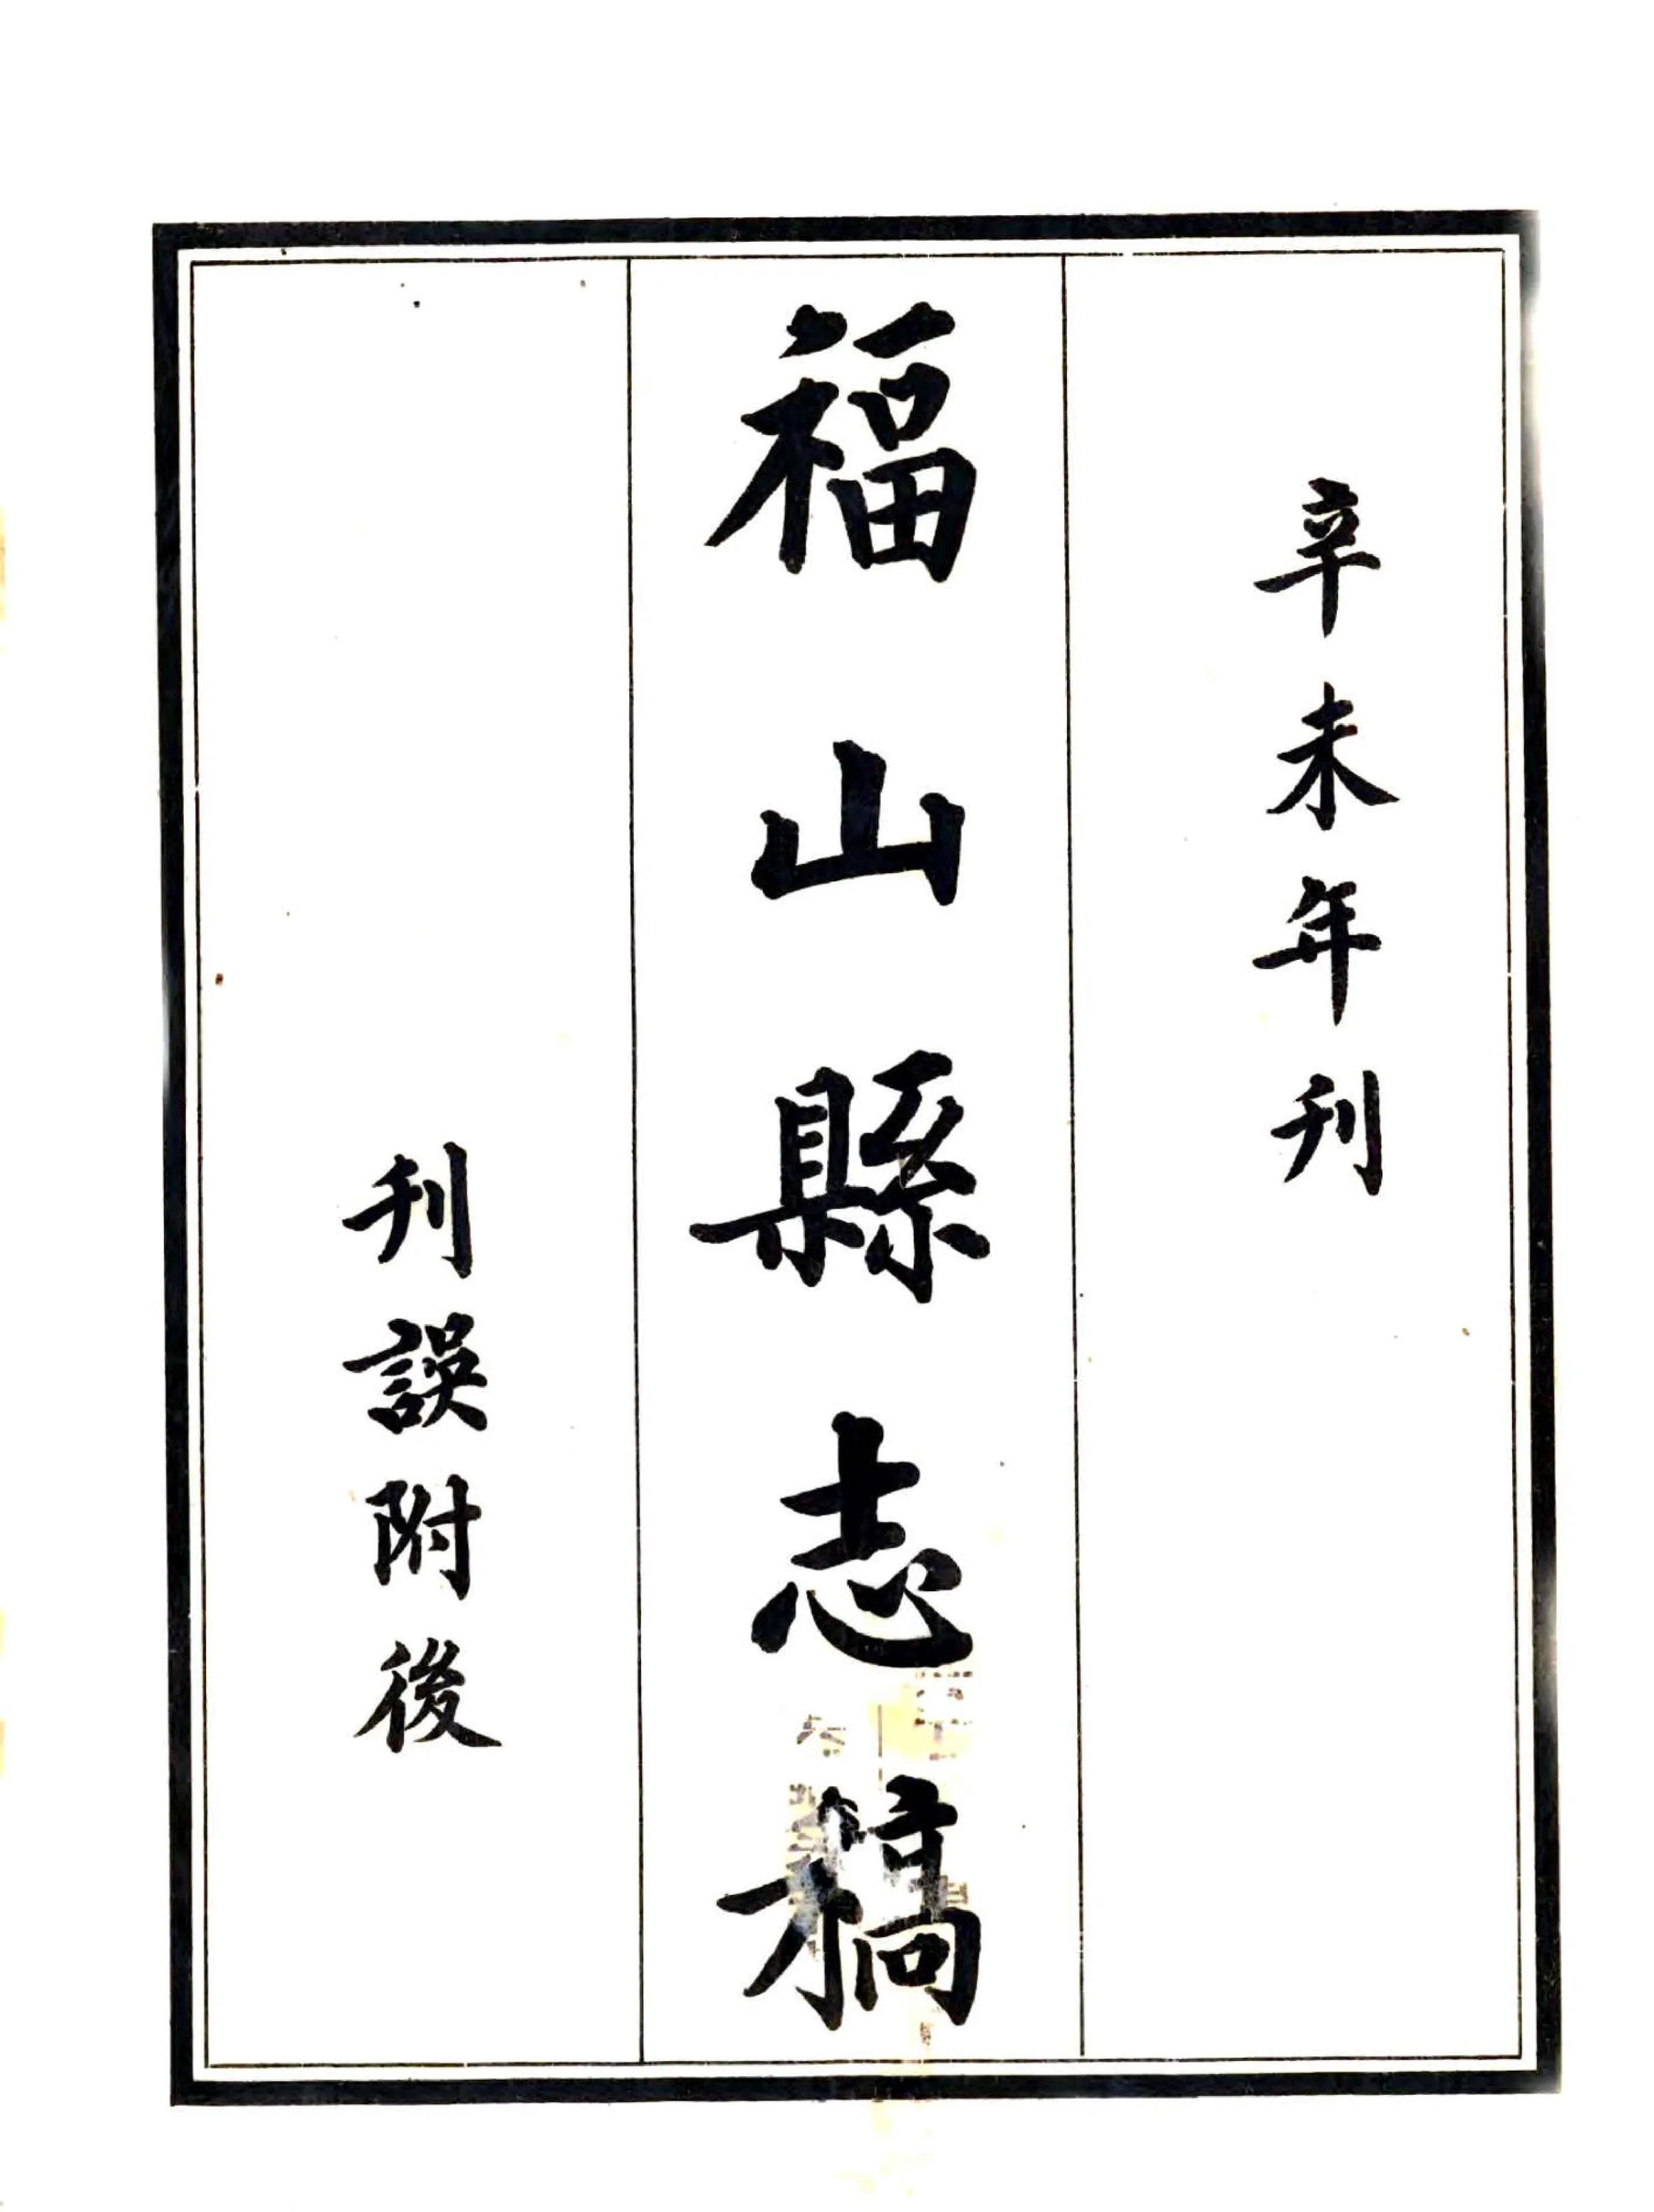 辛未年刊
福山縣志稿
刋誤附後